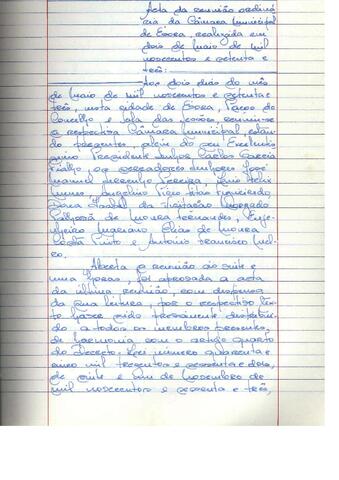 Acta da reunião ordiná
ria da Câmara Municipal
de Évora, realizada em
dois de Maio de mil
novecentos e setenta e
três:
Aos dois dias do mês
de Maio de mil novecentos e setenta e
três, nesta cidade de Évora, Paços do
Concelho e sala das sessões, reuniu-se
a respectiva Câmara Municipal, estan
do presentes, além do seu Excelentís
simo Presidente Senhor Carlos Garcia
Fialho, os vereadores Senhores José
Manuel Pereira, Luís Félix
Nunes, Angelino Pízio Dona Isabel da Visitação de Moura Fernandes, Enge
nheiro Mariano Elias de Moura
Costa Pinto e António Francisco Mel
eo.
Aberta a reunião às vinte e
uma horas, foi aprovada a acta
da última reunião, com dispensa
da sua leitura, por o respectivo tex
to haver sido previamente distribuí
do a todos os membros presentes,
de harmonia com o artigo quarto
do Decreto-Lei número quarenta e
cinco mil trezentos e sessenta e dois,
de vinte e um de Novembro de
mil novecentos e sessenta e três,